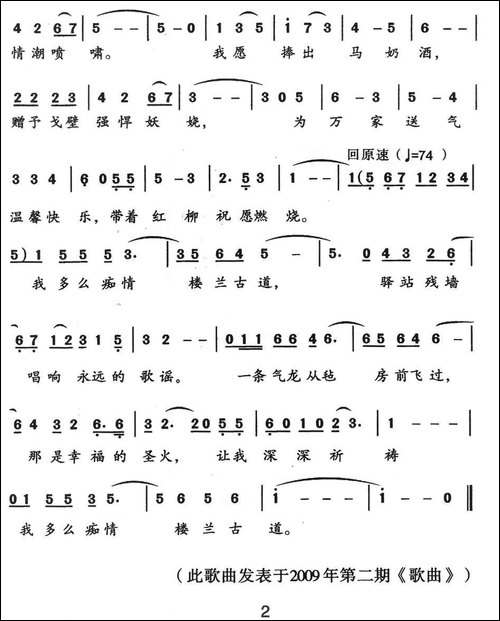 4 2 6 7 | 5 - - | 5 - 0 | 1 3 5 | i 7 3 | 4 - 5 | 6 - - |
情潮喷 啸。 我愿 捧出 马 奶 酒,
2 2 2 3 | 4 2 6 7 | 3 - - | 3 0 5 | 6 - 3 | 5 - 4 |
赠予 戈壁 强悍 妖 娆, 为 万 家 送 气
回原速(♩=74)
3 3 4 | 6 0 5 5 | 5 - 3 | 2. 5 3 | 1 - - | 1 (5 6 7 1 2 3 4 |
温馨快 乐,带着 红 柳 祝 愿燃 烧。
5) 1 5 5 5 3. | 3 5 6 4 5 | 5 - - - | 5. 0 4 3 2 6 |
我 多 么 痴情 楼 兰 古 道, 驿站 残墙
6 7 1 2 3 1 5 | 3 2 - - | 0 1 1 6 6 4 6. | 6 5 6 4 6 - |
唱响 永远的 歌谣。 一条 气龙从毡 房前飞过,
6 4 3 2 6. 6 | 3 2. 2 0 5 5 | 6 0 1 0 2 3. | 1 - - - |
那 是 幸 福 的 圣火, 让我 深 深 祈 祷
0 1 5 5 3 5. | 5 6 5 6 | i - - - | i - - 0 ‖
我 多 么 痴情 楼 兰 古 道。
(此歌曲发表于2009年第二期《歌曲》)
2